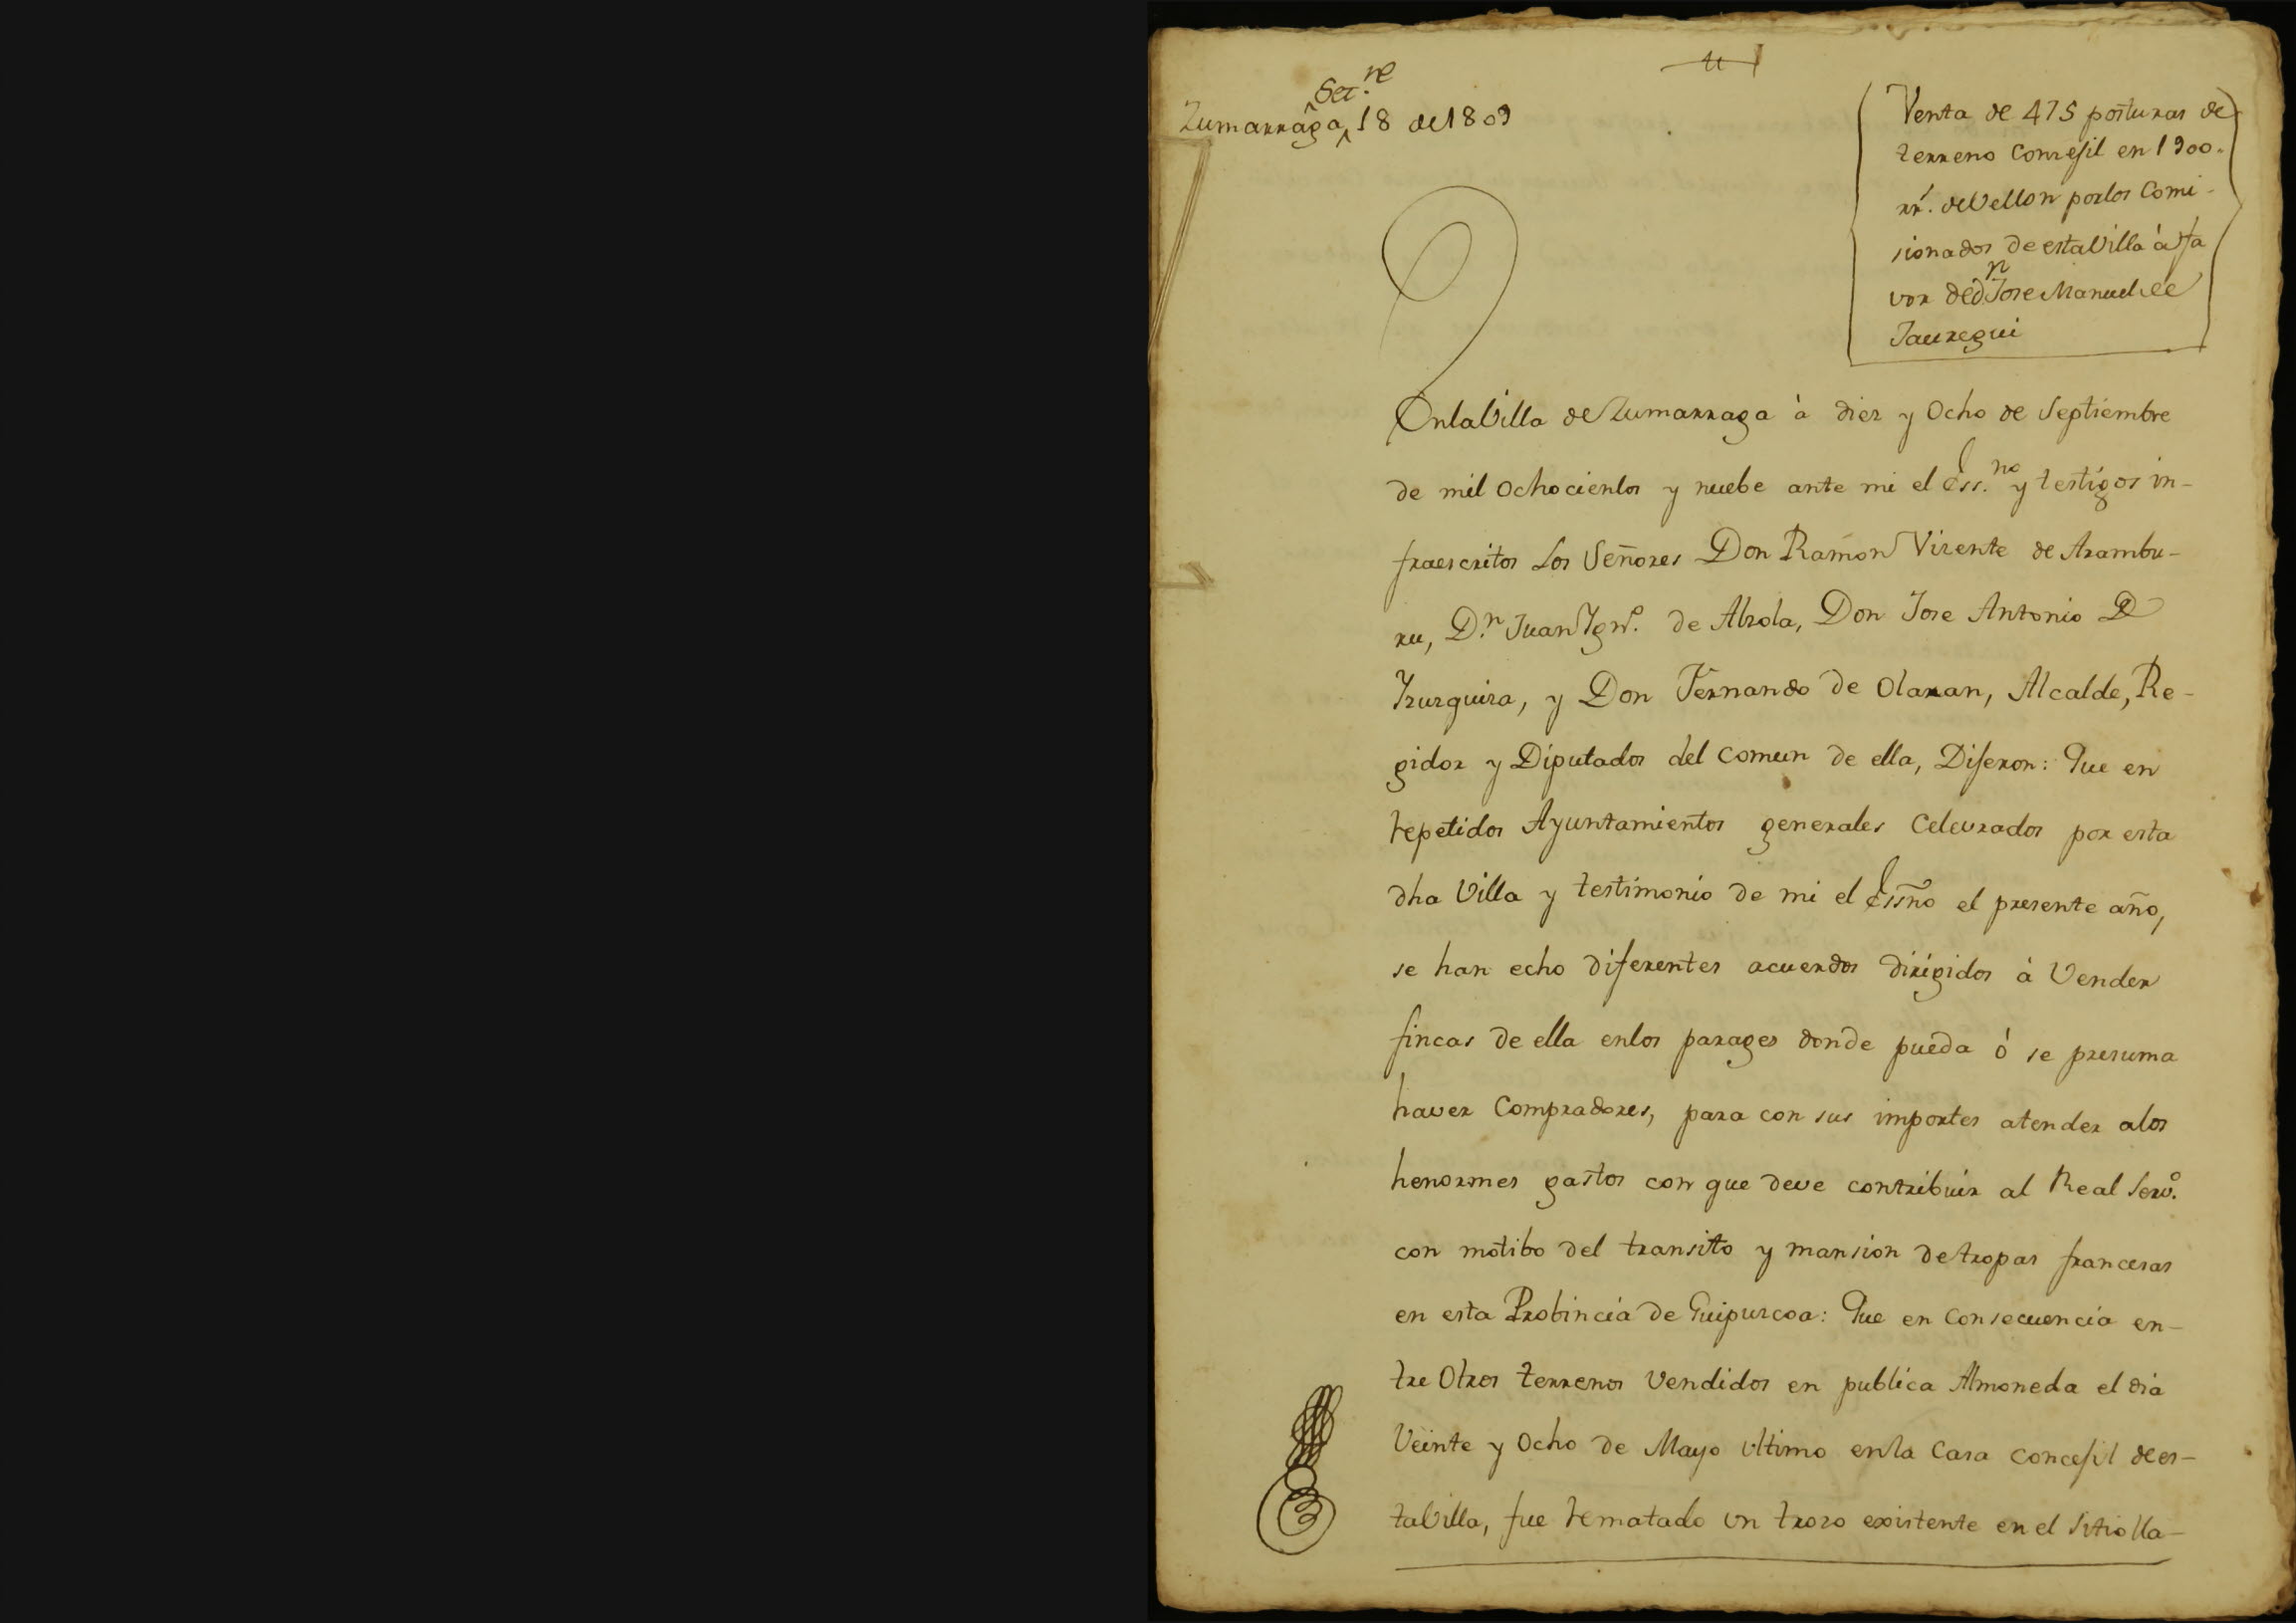 Set.re
Zumarraga, 18 de 1809
Venta de 475 posturas de
terreno Concejil en 1900.
rr.s de Vellon por los Comi-
sionados de esta Villa á fa
vor de D.n Jose Manuel de
Jauregui
En la Villa de Zumarraga à diez y Ocho de Septiembre
de mil Ochocientos y nuebe ante mi el Ess.no y testigos in-
fraescritos Los Señores Don Ramon Vizente de Arambu-
ru, D.n Juan Ygn.o de Alzola, Don Jose Antonio De
Yzurguiza, y Don Fernando de Olaran, Alcalde, Re-
gidor y Diputados del Comun de ella, Dijeron: Que en
repetidos Ayuntamientos generales Celevrados por esta
dha Villa y testimonio de mi el Essño el presente año,
se han echo diferentes acuerdos dirigidos à Vender
fincas de ella enlos parages donde pueda ó se presuma
haver Compradores, para con sus importes atender alos
henormes gastos con que deve contribuir al Real Serv.o
con motibo del transito y mansion detropas francesas
en esta Probincia de Guipuzcoa: Que en Consecuencia en-
tre Otros terrenos Vendidos en publica Almoneda el dia
Veinte y Ocho de Mayo ultimo enla Casa Concejil de es-
ta Villa, fue rematado un trozo existente en el Sitio lla-